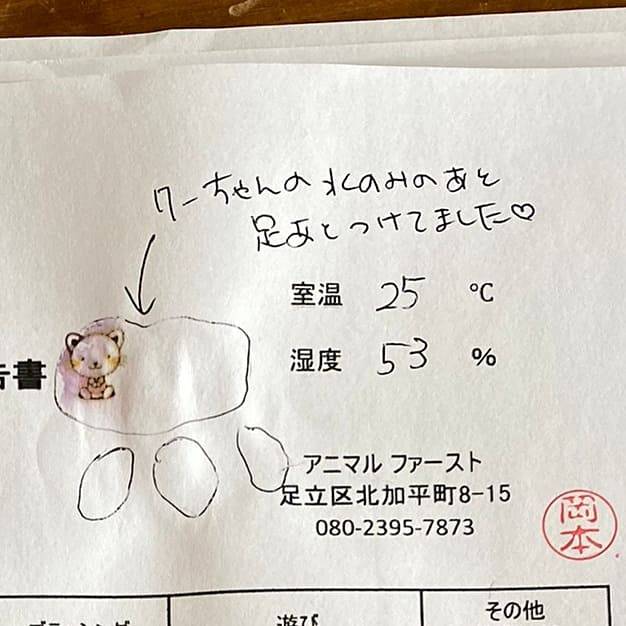 クーちゃんの水のみのあと
足あとつけてました♡
室温 25 ℃
湿度 53 %
告書
アニマル ファースト
足立区北加平町8-15
080-2395-7873
岡本
ブラッシング 遊び その他